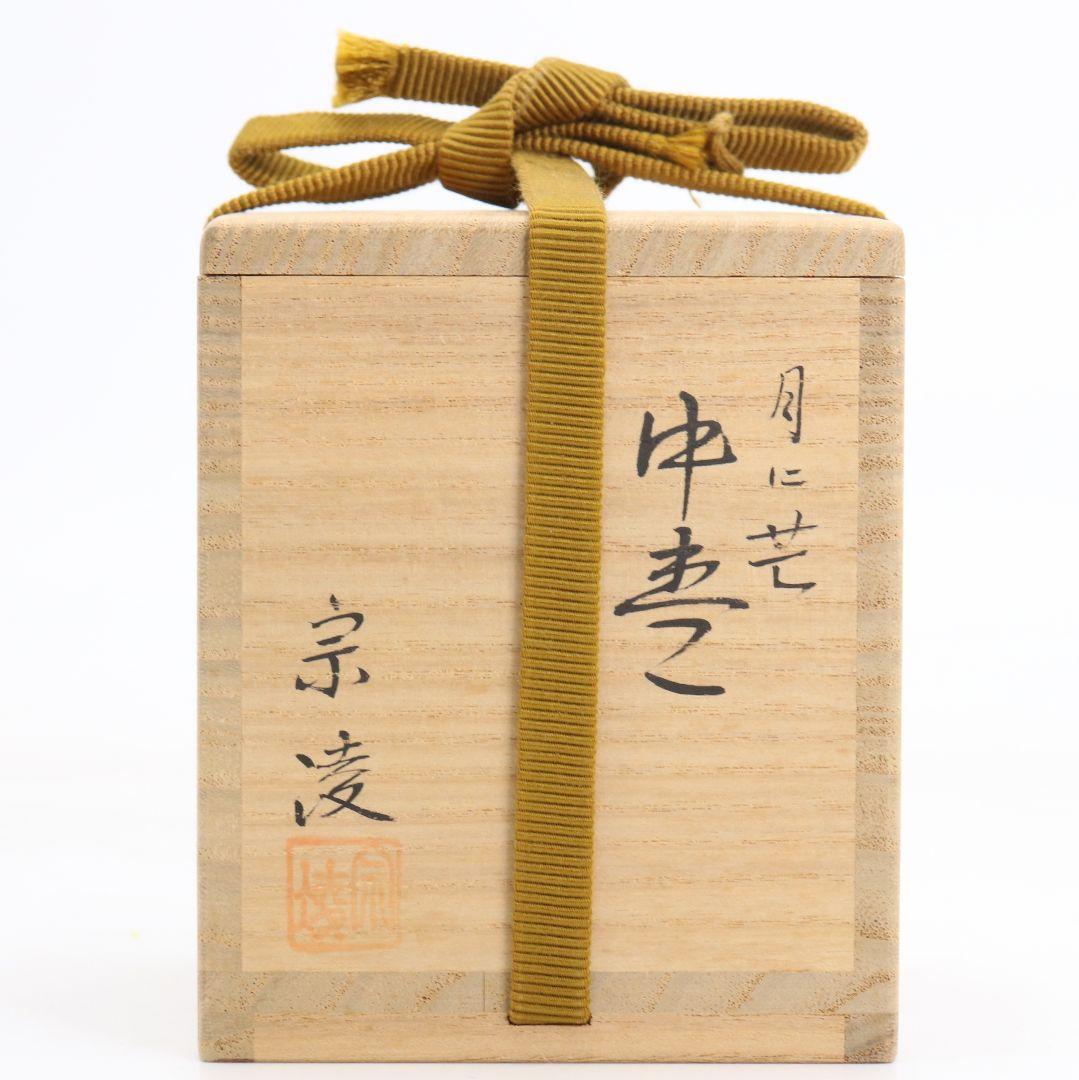 月に芒
中棗
宗凌
宗凌